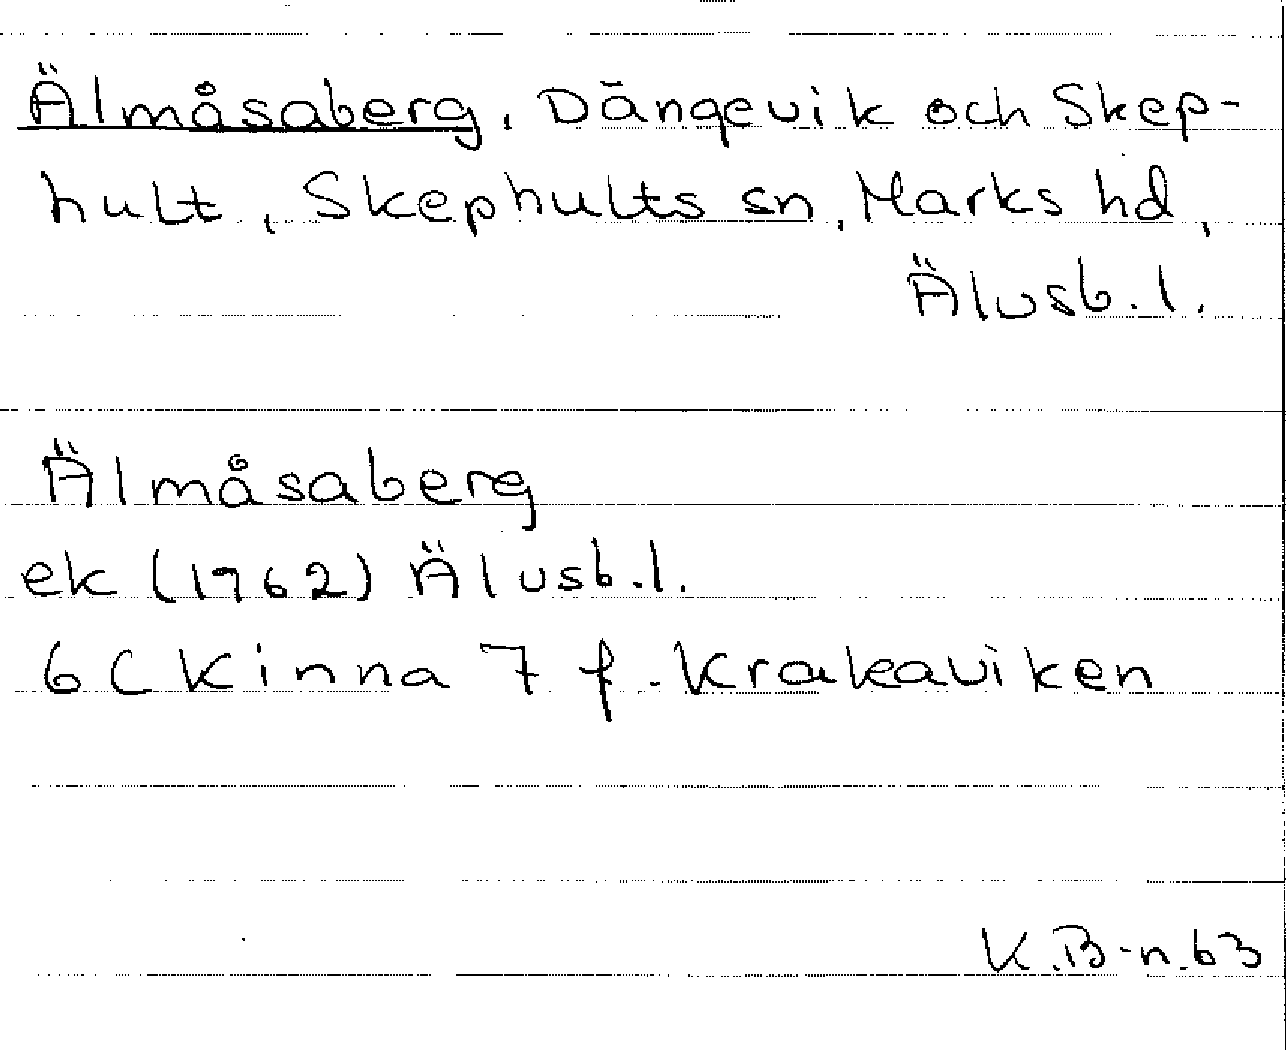 Älmåsaberg, Dängevik och Skep-
hult, Skephults sn, Marks hd,
Älvsb. l.
Älmåsaberg
ek (1962) Älvsb. l.
6C Kinna 7 f. Krakaviken
K.B-n.63